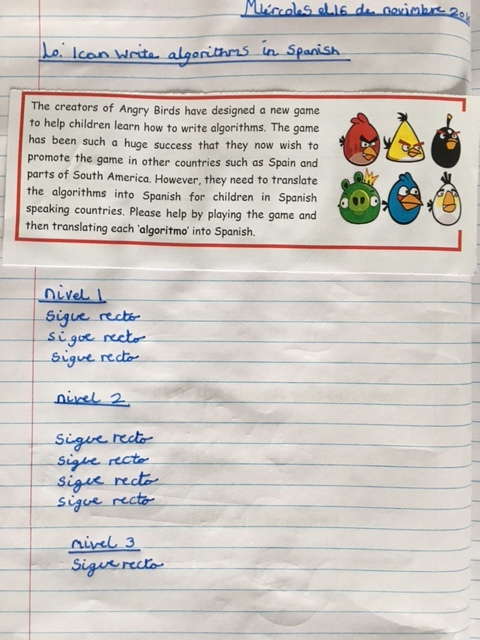 Miércoles el 16 de novimbre 20
Lo: I can write algorithms in Spanish
The creators of Angry Birds have designed a new game
to help children learn how to write algorithms. The game
has been such a huge success that they now wish to
promote the game in other countries such as Spain and
parts of South America. However, they need to translate
the algorithms into Spanish for children in Spanish
speaking countries. Please help by playing the game and
then translating each 'algoritmo' into Spanish.
nivel 1
Sigue recto
Sigue recto
Sigue recto
nivel 2
Sigue recto
Sigue recto
Sigue recto
Sigue recto
nivel 3
Sigue recto